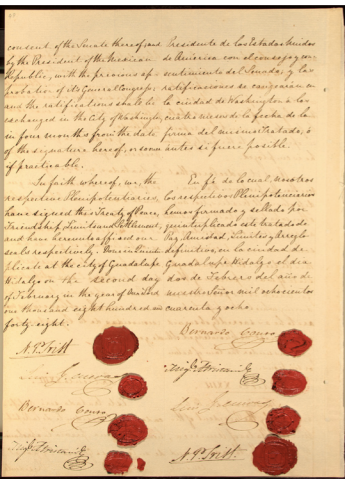 consent of the Senate thereof; and
by the President of the Mexican
Republic, with the previous ap-
probation of its General Congress;
and the ratifications shall be
exchanged in the City of Washington,
in four months from the date
of the signature hereof, or sooner
if practicable.
In faith whereof, we, the
respective Plenipotentiaries,
have signed this Treaty of Peace,
Friendship, Limits and Settlement,
and have hereunto affixed our
seals respectively. Done in Quintu-
plicate at the city of Guadalupe
Hidalgo on the second day
of February in the year of our Lord
one thousand eight hundred and
forty-eight.
N. P. Trist
Luis G. Cuevas
Bernardo Couto
Migl. Atristain
Presidente de los Estados Unidos
de América con el consejo y con-
sentimiento del Senado; y las
ratificaciones se cangearán en
la ciudad de Washington a los
cuatro meses de la fecha de la
firma del mismo tratado, ó
antes si fuere posible.
En fé de lo cual, nosotros
los respectivos Plenipotenciarios
hemos firmado y sellado por
quintuplicado este tratado de
Paz, Amistad, Límites y Arreglo
definitivo en la ciudad de
Guadalupe Hidalgo el dia
dos de Febrero del año de
nuestro Señor mil ochocientos
cuarenta y ocho
Bernardo Couto
Migl. Atristain
Luis G. Cuevas
N. P. Trist